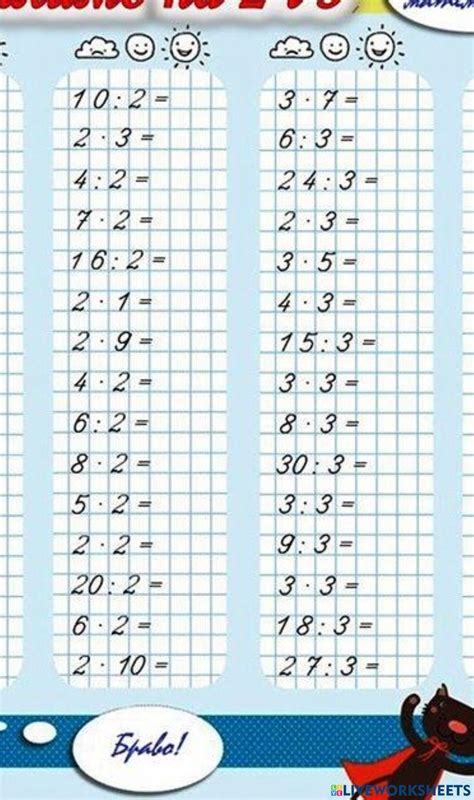 на 2 и 3
10:2=
2·3=
4:2=
7·2=
16:2=
2·1=
2·9=
4·2=
6:2=
8·2=
5·2=
2·2=
20:2=
6·2=
2·10=
3·7=
6:3=
24:3=
2·3=
3·5=
4·3=
15:3=
3·3=
8·3=
30:3=
3:3=
9:3=
3·3=
18:3=
27:3=
Браво!
LIVEWORKSHEETS